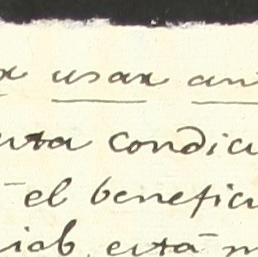 usar an
sta condici
el benefici
está m